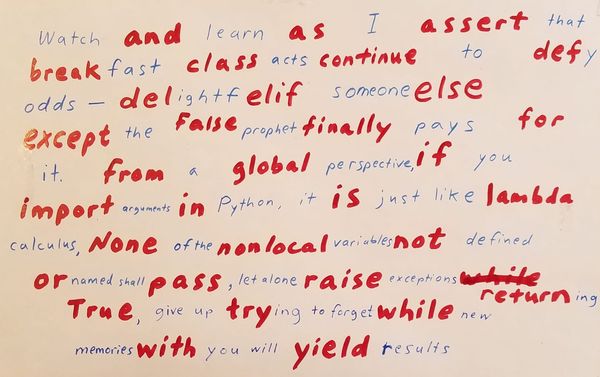 Watch and learn as I assert that
breakfast class acts continue to defy
odds — delightfelif someoneelse
except the False prophet finally pays for
it. from a global perspective, if you
import arguments in Python, it is just like lambda
calculus, None of the nonlocal variables not defined
or named shall pass, let alone raise exceptions while
returning
True, give up trying to forget while new
memories with you will yield results